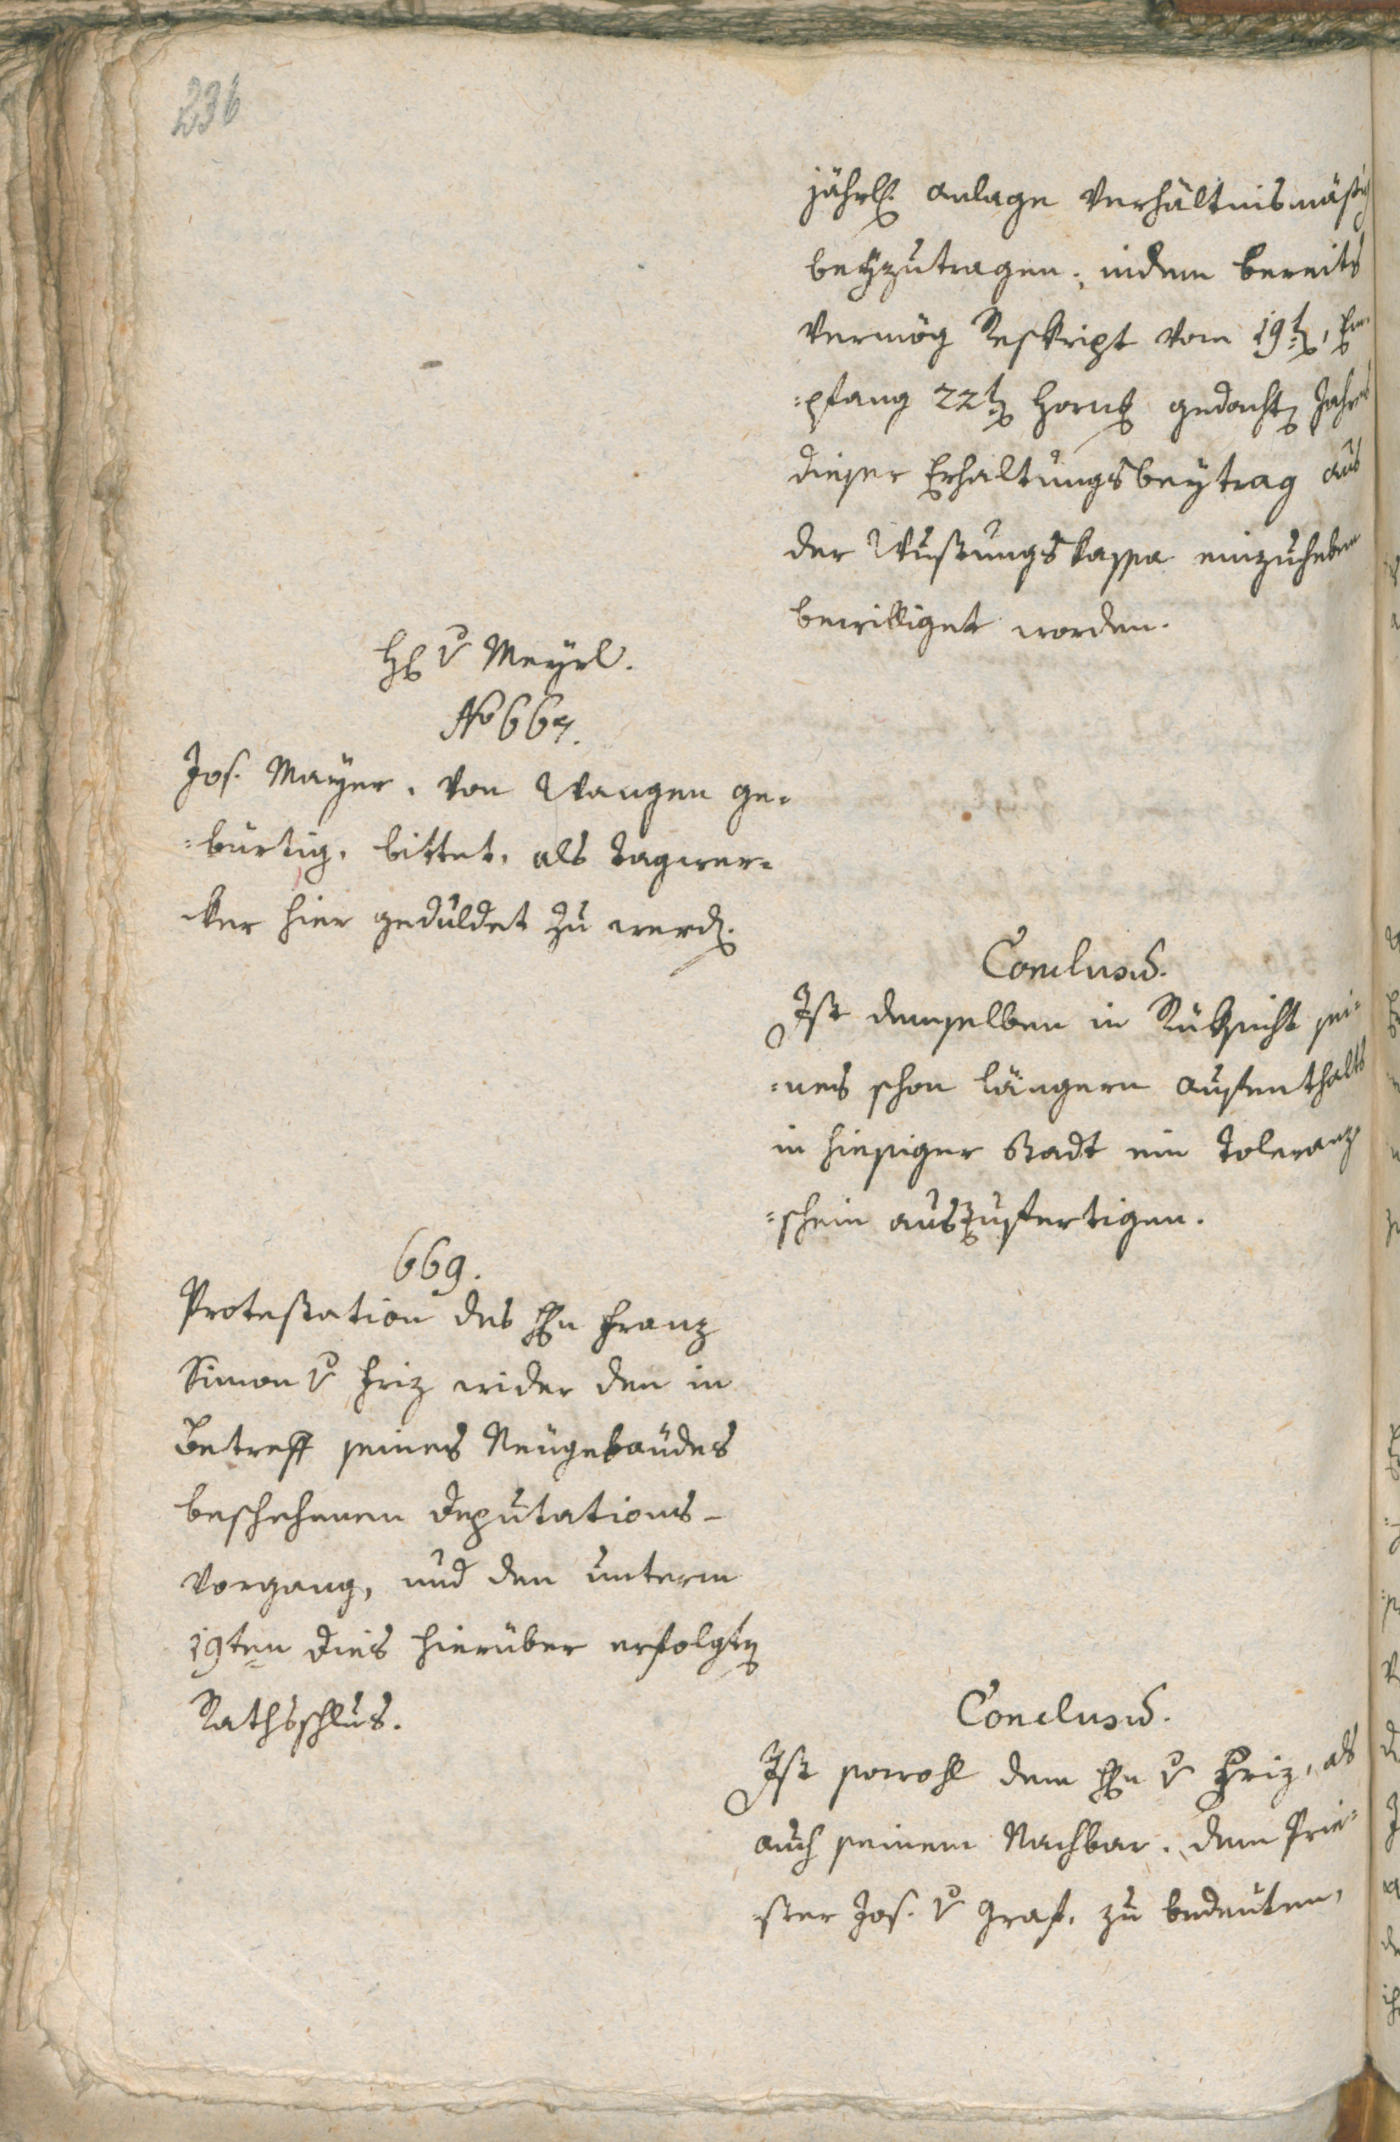 236
jährl. anlage verhältnismäsig
beyzutragen, indem bereits
vermög Reskript vom 19t, Em-
=pfang 22t Horng gedacht Jahres
dieser Erhaltungsbeytrag aus
der Wustungskassa einzuheben
bewilliget worden.
H v Meyrl.
No 667.
Jos. Mayer, von Wangen ge-
=bürtig, bittet, als Tagwer-
cker hier geduldet zu werd.
Conclusū.
Ist demselben in Rüksicht sei-
=nes schon längern aufenthalts
in hiesiger Stadt ein Toleranz
=schein auszufertigen.
669.
Protestation des Hn Franz
Simon v Friz wider den in
Betreff seines Neügebäudes
beschehenen Deputations-
vorgang, und den unterm
19ten dies hierüber erfolgt
Rathsschlus.
Conclusū.
Ist sowohl dem Hn v Friz, als
auch seinem Nachbar, dem Prie-
ster Jos. v Graf, zu bedeuten,